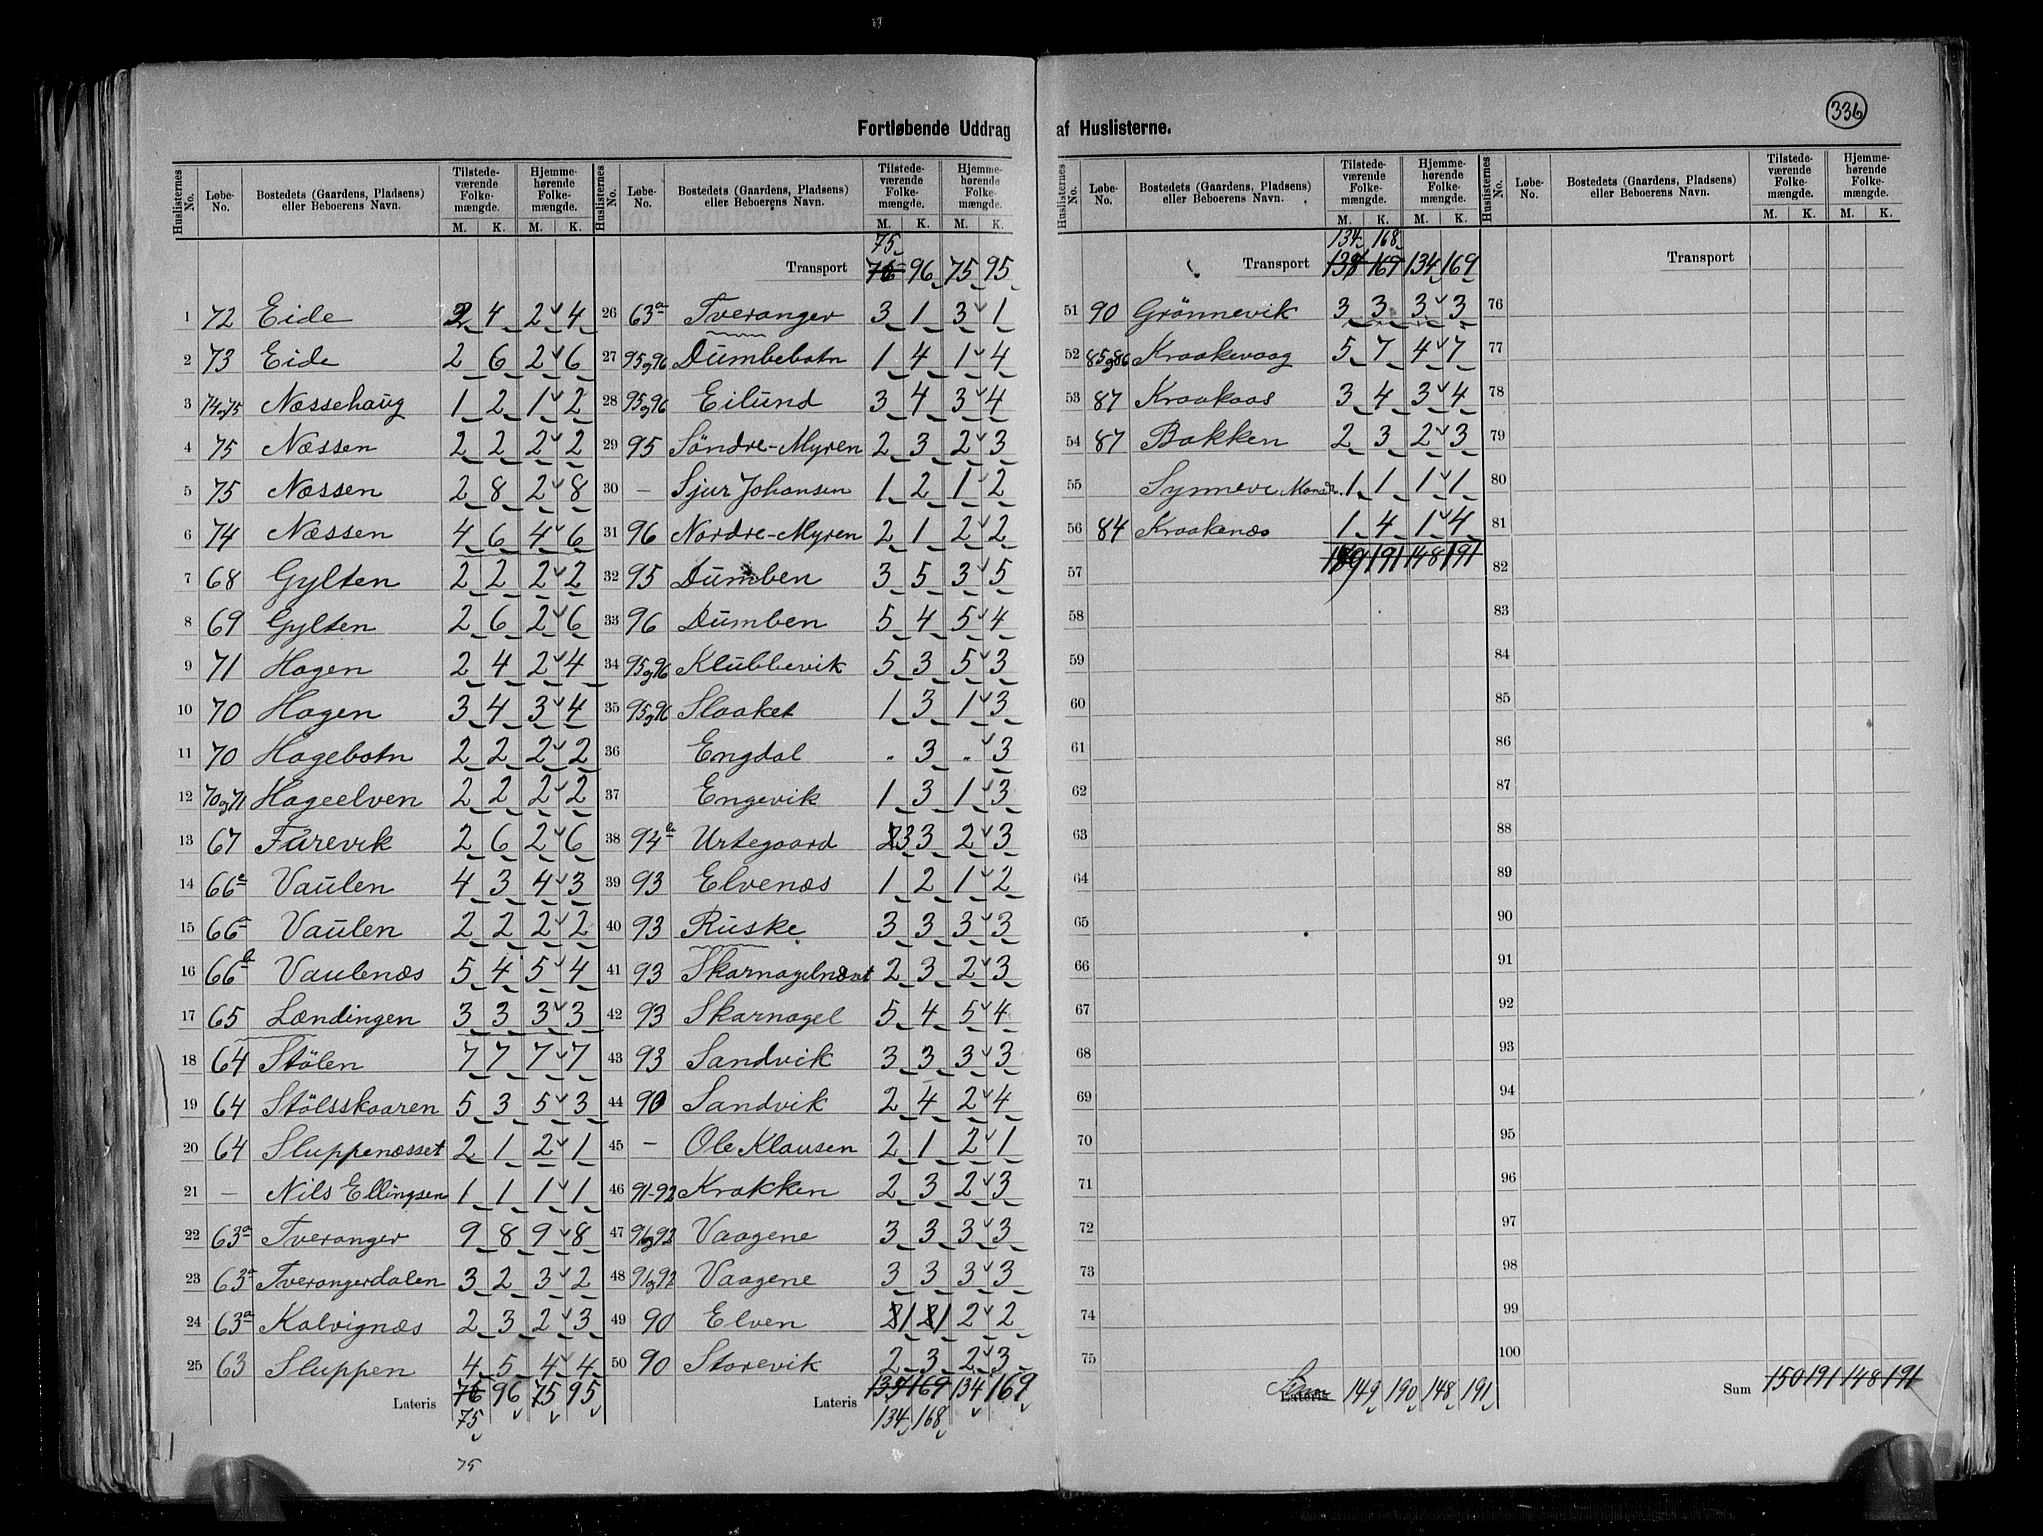 336
Fortløbende Uddrag af Huslisterne.
Huslisternes No. Løbe-No. Bostedets (Gaardens, Pladsens) eller Beboerens Navn. Tilstedeværende Folkemængde. M. K. Hjemmehørende Folkemængde. M. K.
1 72 Eide 2 4 2 4
2 73 Eide 2 6 2 6
3 74og75 Næssehaug 1 2 1 2
4 75 Næssen 2 2 2 2
5 75 Næssen 2 8 2 8
6 74 Næssen 4 6 4 6
7 68 Gylten 2 2 2 2
8 69 Gylten 2 6 2 6
9 71 Hagen 2 4 2 4
10 70 Hagen 3 4 3 4
11 70 Hagebotn 2 2 2 2
12 70og71 Hageelven 2 2 2 2
13 67 Furevik 2 6 2 6
14 66 Vaulen 4 3 4 3
15 66 Vaulen 2 2 2 2
16 66 Vaulenæs 5 4 5 4
17 65 Lændingen 3 3 3 3
18 64 Stölen 7 7 7 7
19 64 Stölsskaaren 5 3 5 3
20 64 Sluppenæsset 2 1 2 1
21 — Nils Ellingsen 1 1 1 1
22 63a Tveranger 9 8 9 8
23 63a Tverangerdalen 3 2 3 2
24 63a Kalvignæs 2 3 2 3
25 63 Sluppen 4 5 4 4
Lateris 76 96 75 95
75
75
Huslisternes No. Løbe-No. Bostedets (Gaardens, Pladsens) eller Beboerens Navn. Tilstedeværende Folkemængde. M. K. Hjemmehørende Folkemængde. M. K.
75
Transport 76 96 75 95
26 63a Tveranger 3 1 3 1
27 95og96 Dumbebotn 1 4 1 4
28 95og96 Eilund 3 4 3 4
29 95 Söndre-Myren 2 3 2 3
30 — Sjur Johansen 1 2 1 2
31 96 Nordre-Myren 2 1 2 2
32 95 Dumben 3 5 3 5
33 96 Dumben 5 4 5 4
34 95og96 Klubbevik 5 3 5 3
35 95og96 Slaaket 1 3 1 3
36 Engdal . 3 . 3
37 Engevik 1 3 1 3
38 94a Urtegaard 3 3 2 3
39 93 Elvenæs 1 2 1 2
40 93 Ruske 3 3 3 3
41 93 Skarnagelnæset 2 3 2 3
42 93 Skarnagel 5 4 5 4
43 93 Sandvik 3 3 3 3
44 90 Sandvik 2 4 2 4
45 — Ole Klausen 2 1 2 1
46 91-92 Krakken 2 3 2 3
47 Vaagene 3 3 3 3
48 91og92 Vaagene 3 3 3 3
49 90 Elven 1 1 2 2
50 90 Storevik 2 3 2 3
Lateris 169 134 169
134 168
Huslisternes No. Løbe-No. Bostedets (Gaardens, Pladsens) eller Beboerens Navn. Tilstedeværende Folkemængde. M. K. Hjemmehørende Folkemængde. M. K.
134 168
Transport 169 134 169
51 90 Grönnevik 3 3 3 3
52 85og86 Kraakevaag 5 7 4 7
53 87 Kraakaas 3 4 3 4
54 87 Bakken 2 3 2 3
55 Synneve 1 1 1 1
56 84 Kraakenæs 1 4 1 4
57 191 148 191
58
59
60
61
62
63
64
65
66
67
68
69
70
71
72
73
74
75
Lateris Sum 149 190 148 191
Huslisternes No. Løbe-No. Bostedets (Gaardens, Pladsens) eller Beboerens Navn. Tilstedeværende Folkemængde. M. K. Hjemmehørende Folkemængde. M. K.
Transport
76
77
78
79
80
81
82
83
84
85
86
87
88
89
90
91
92
93
94
95
96
97
98
99
100
Sum 150 191 148 191